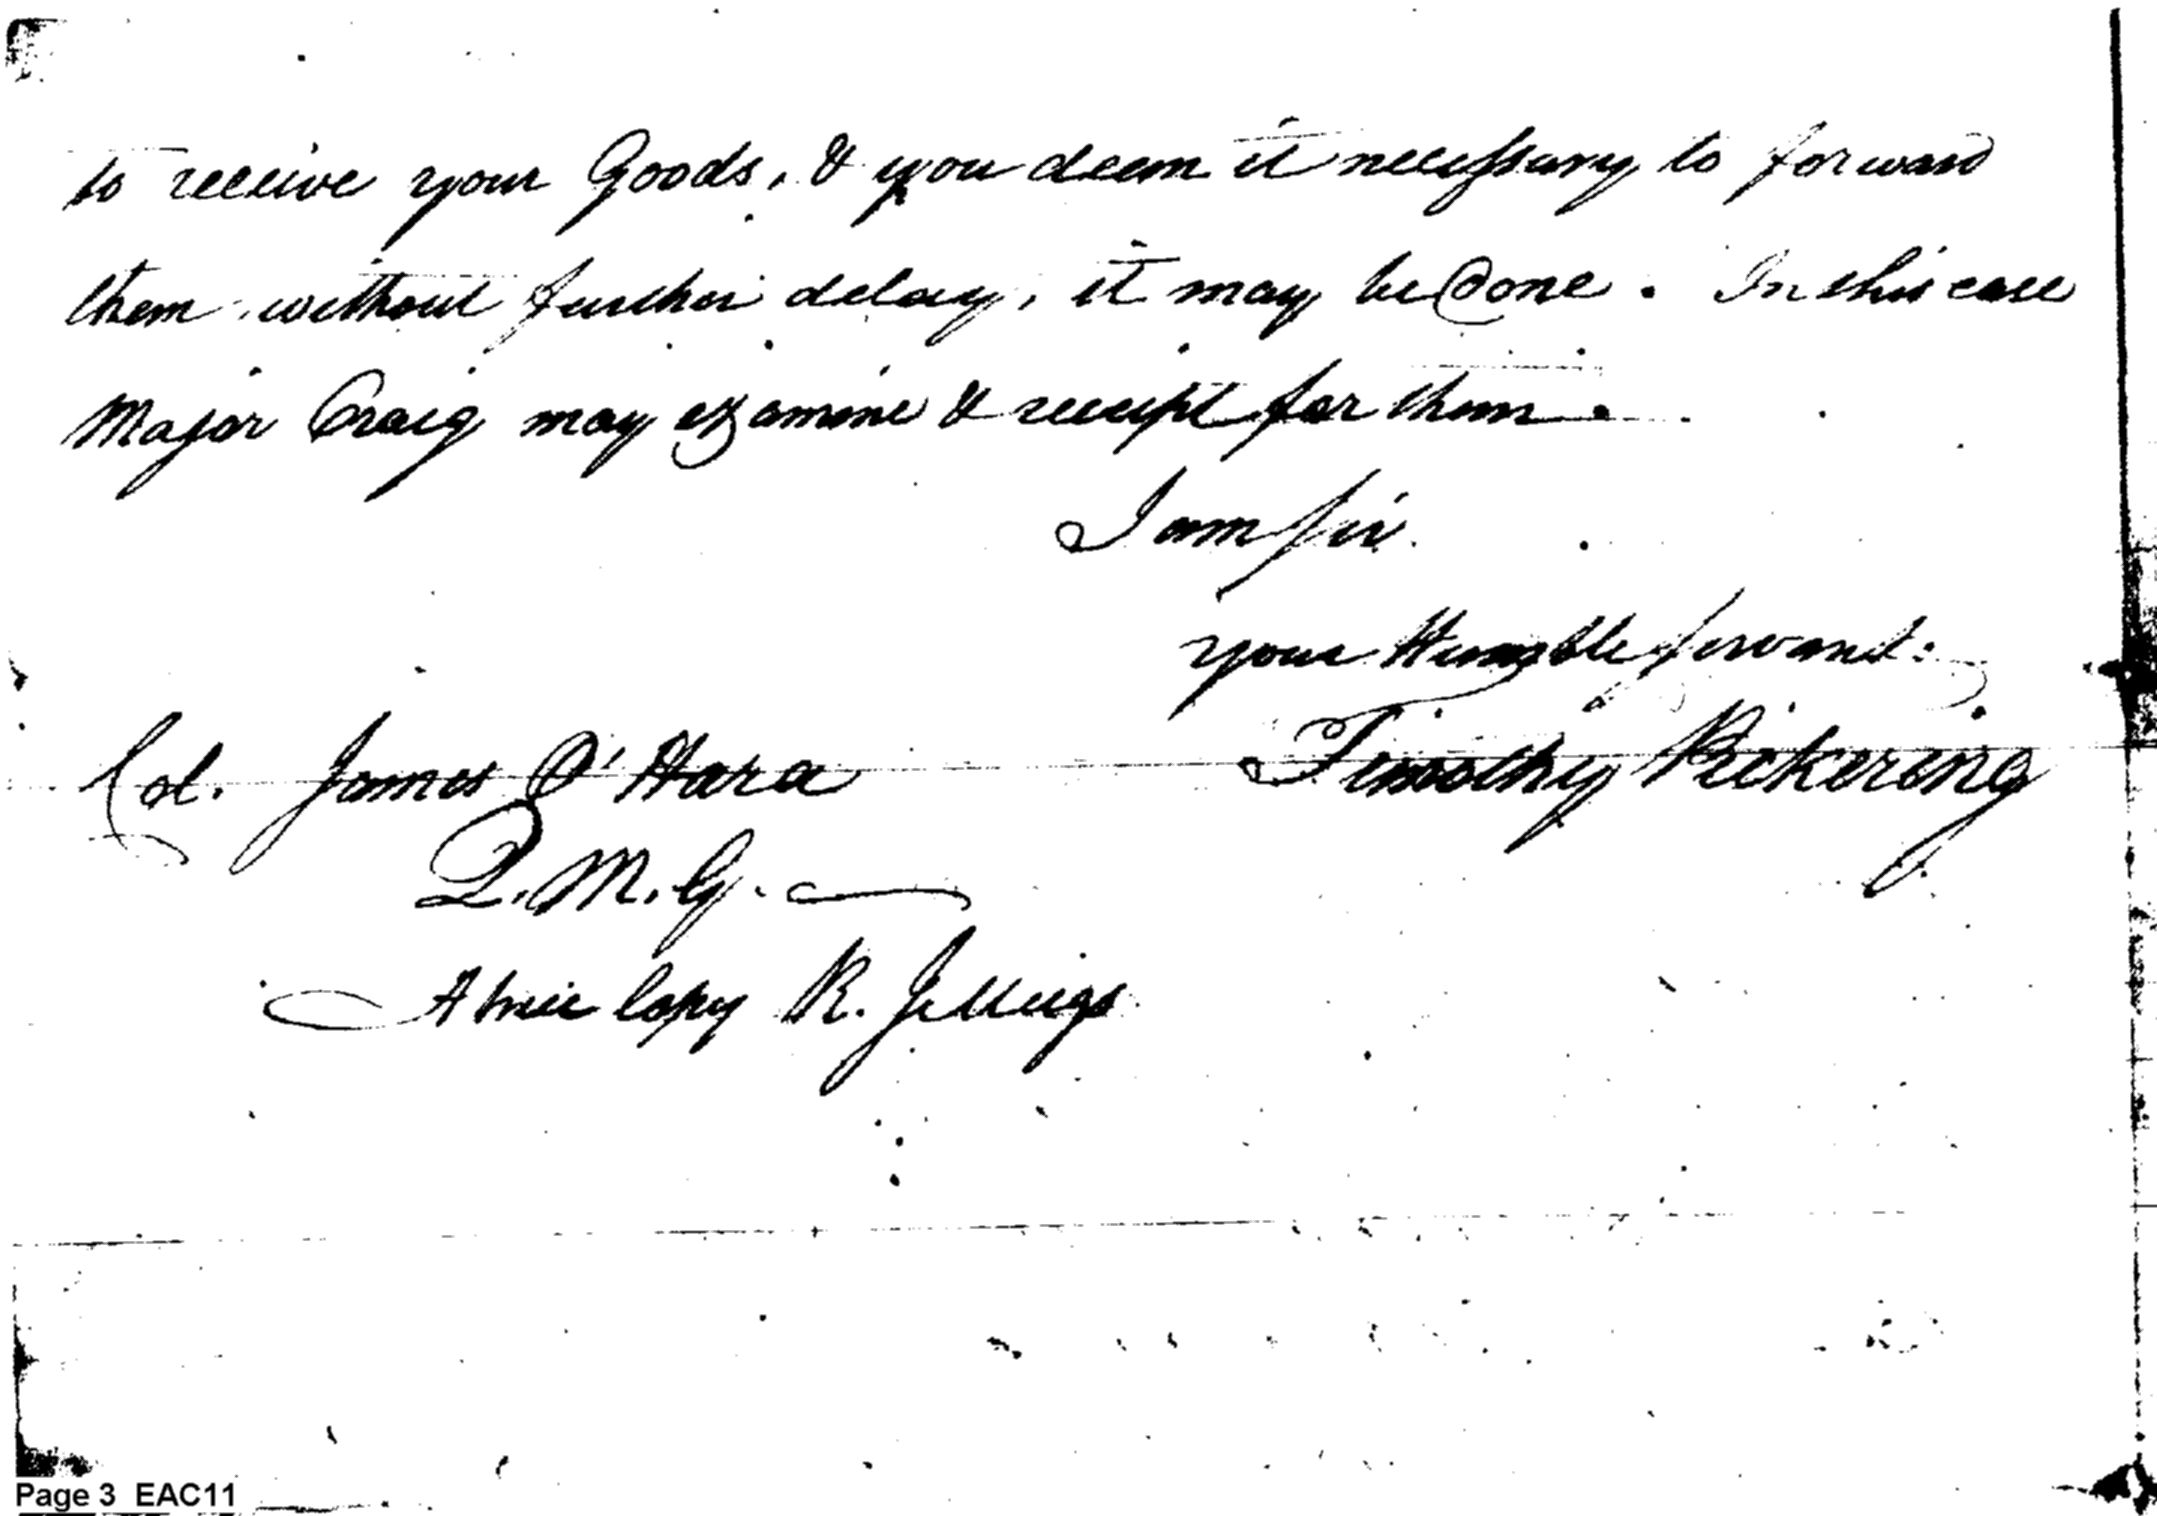 to receive your Goods, & you deem it necessary to forward
them without further delay, it may be done. In this case
Major Craig may examine & receipt for them.
I am Sir.
your Humble Servant.
Timothy Pickering
Col. James O'Hara
Q. M. G.
A true Copy R. J. Meigs
Page 3 EAC11